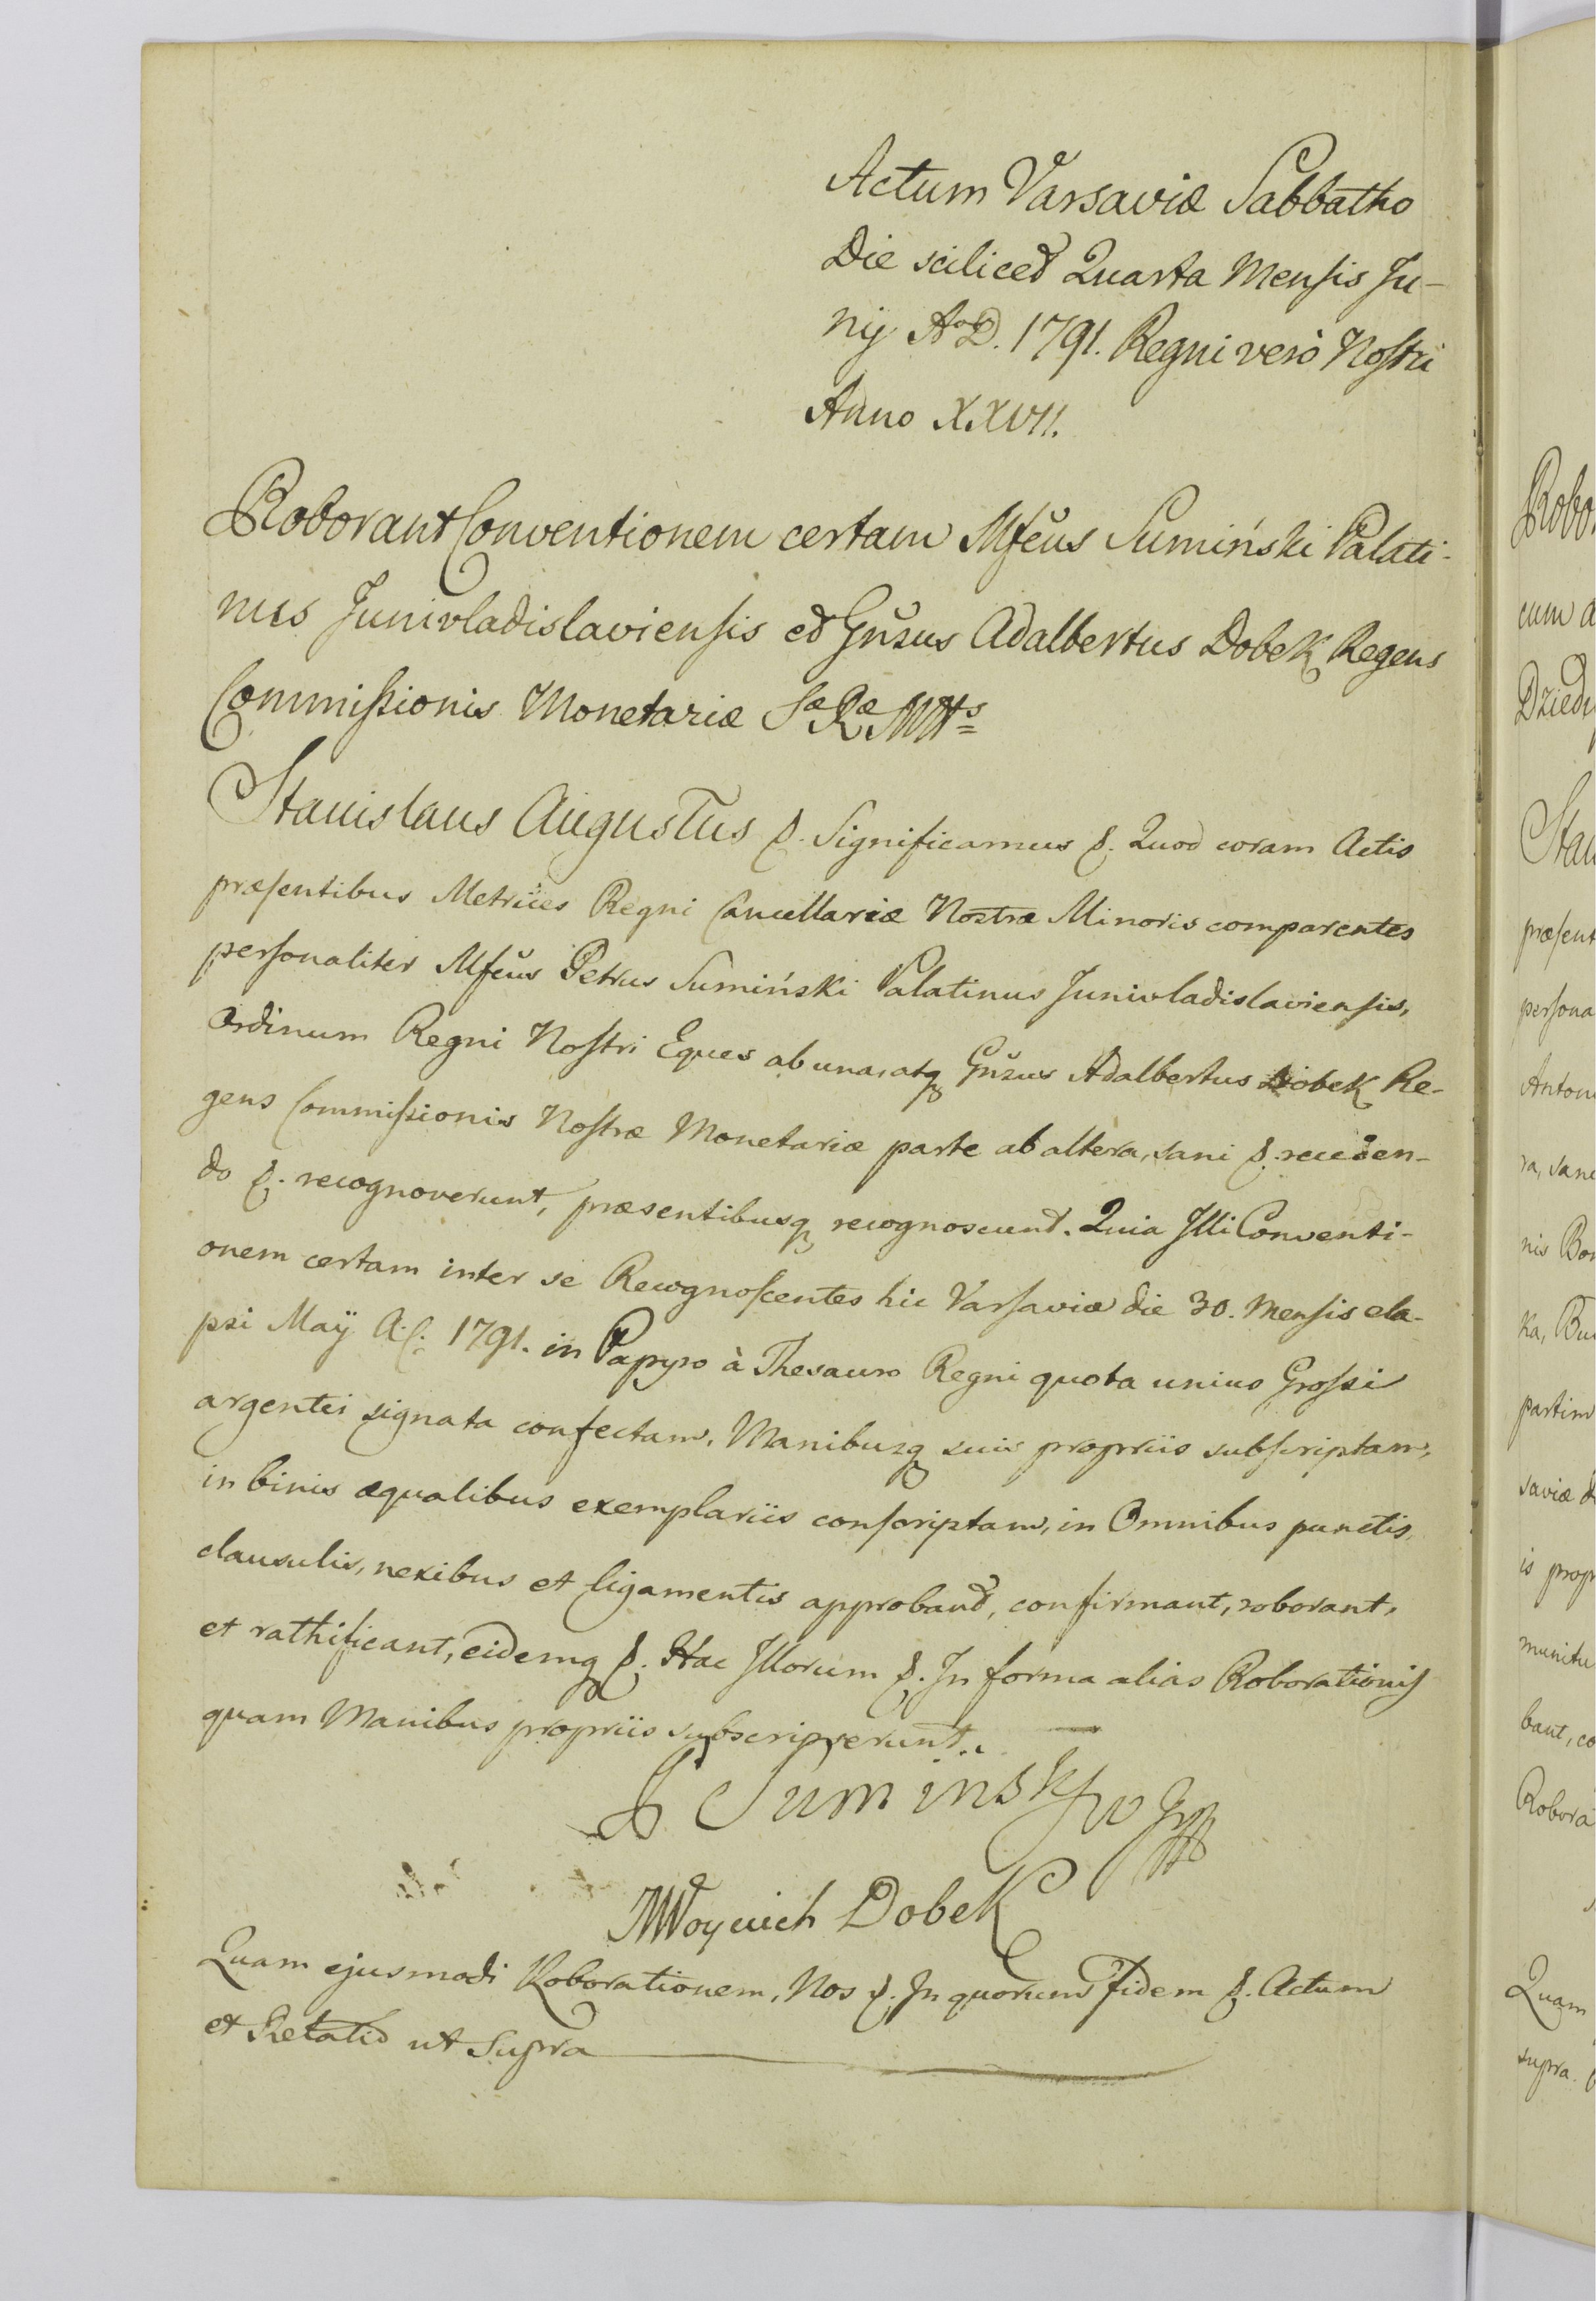 Actum Varsaviæ Sabbatho
Die scilicet Quarta Mensis Ju-
nij Aō D. 1791. Regni verò Nostri
Anno XXVII.
Roborant Conventionem certam Mfcus Sumiński Palati-
nus Junivladislaviensis et Gnsus Adalbertus Dobek Regens
Commissionis Monetariæ Sæ Ræ Mttis
Stanislaus Augustus &. Significamus &. Quod coram Actis
præsentibus Metrices Regni Cancellariæ Nostræ Minoris comparentes
personaliter Mfcus Petrus Sumiński Palatinus Junivladislaviensis,
Ordinum Regni Nostri Eques ab una, atq Gnsus Adalbertus Dobek Re-
gens Commissionis Nostræ Monetariæ parte ab altera, sani &. receden-
do &. recognoverunt, præsentibusq recognoscunt. Quia Illi Conventi-
onem certam inter se Recognoscentes hic Varsaviæ die 30. Mensis ela-
psi Maÿ A. C. 1791. in Papyro à Thesauro Regni quota unius Grossi
argentei signata confectam, Manibusq suis propriis subscriptam,
in binis æqualibus exemplariis conscriptam, in Omnibus punctis,
clausulis, nexibus et ligamentis approbant, confirmant, roborant,
et rathificant, eidemq &. Hac Illorum &. In forma alias Roborationis
quam Manibus propriis subscripserunt.
P Suminski w
MWoyciech Dobek
Quam ejusmodi Roborationem, Nos &. In quorum fidem &. Actum
et Datum ut Supra
Robor
cum
Dziedu
Stan
præsent
persona
Anton
ra, san
nis Bon
ka, Bu
partim
saviæ d
is prop
munitu
bant, co
Robora
Quam
supra.